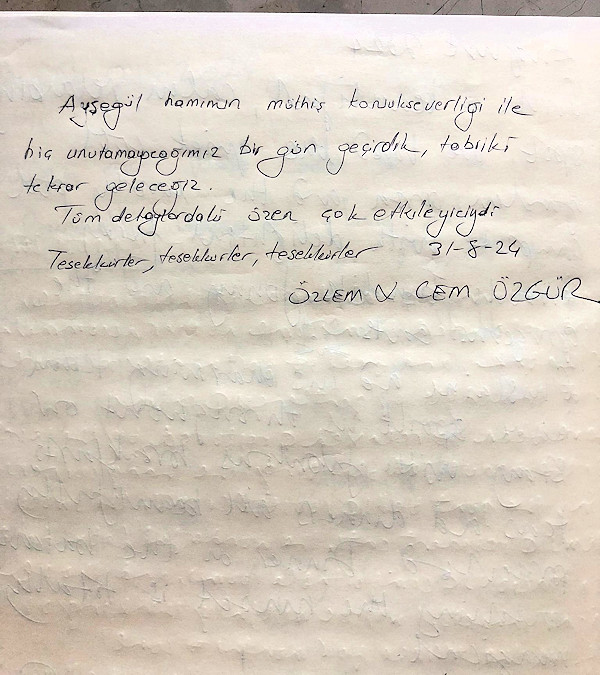 Ayşegül hanımın müthiş konukseverligi ile
hiç unutamayacağımız bir gün geçirdik, tabiiki
tekrar geleceğiz.
Tüm detaylardaki özen çok etkileyiciydi
Teşekkürler, teşekkürler, teşekkürler 31-8-24
ÖZLEM & CEM ÖZGÜR